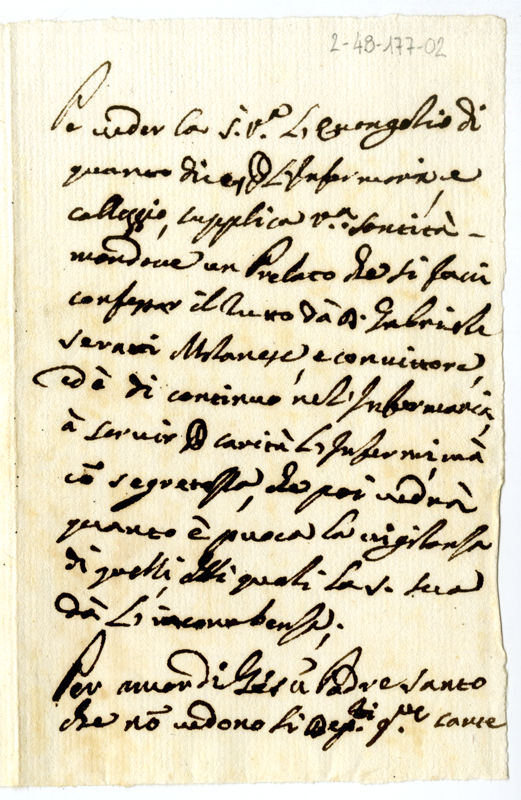 2-48-177-02
Pe veder la S. V.ra L'evangelio di
quanto dice, L'Infermaria, e
colleggio, supplica V.ra Santità
mandare un Prelato che si facci
confessar il tutto dà D. Gabriele
Milanese, e convittore,
ed è di continuo nel'Infermaria,
à servir carità L'Infermi, mà
cõ segretezza, che poi vedrà
quanto è puoca la vigilanza
di quelli, alli quali la S. Sua
dà
Per amor di Giesù Padre Santo
che nõ vedono li carte